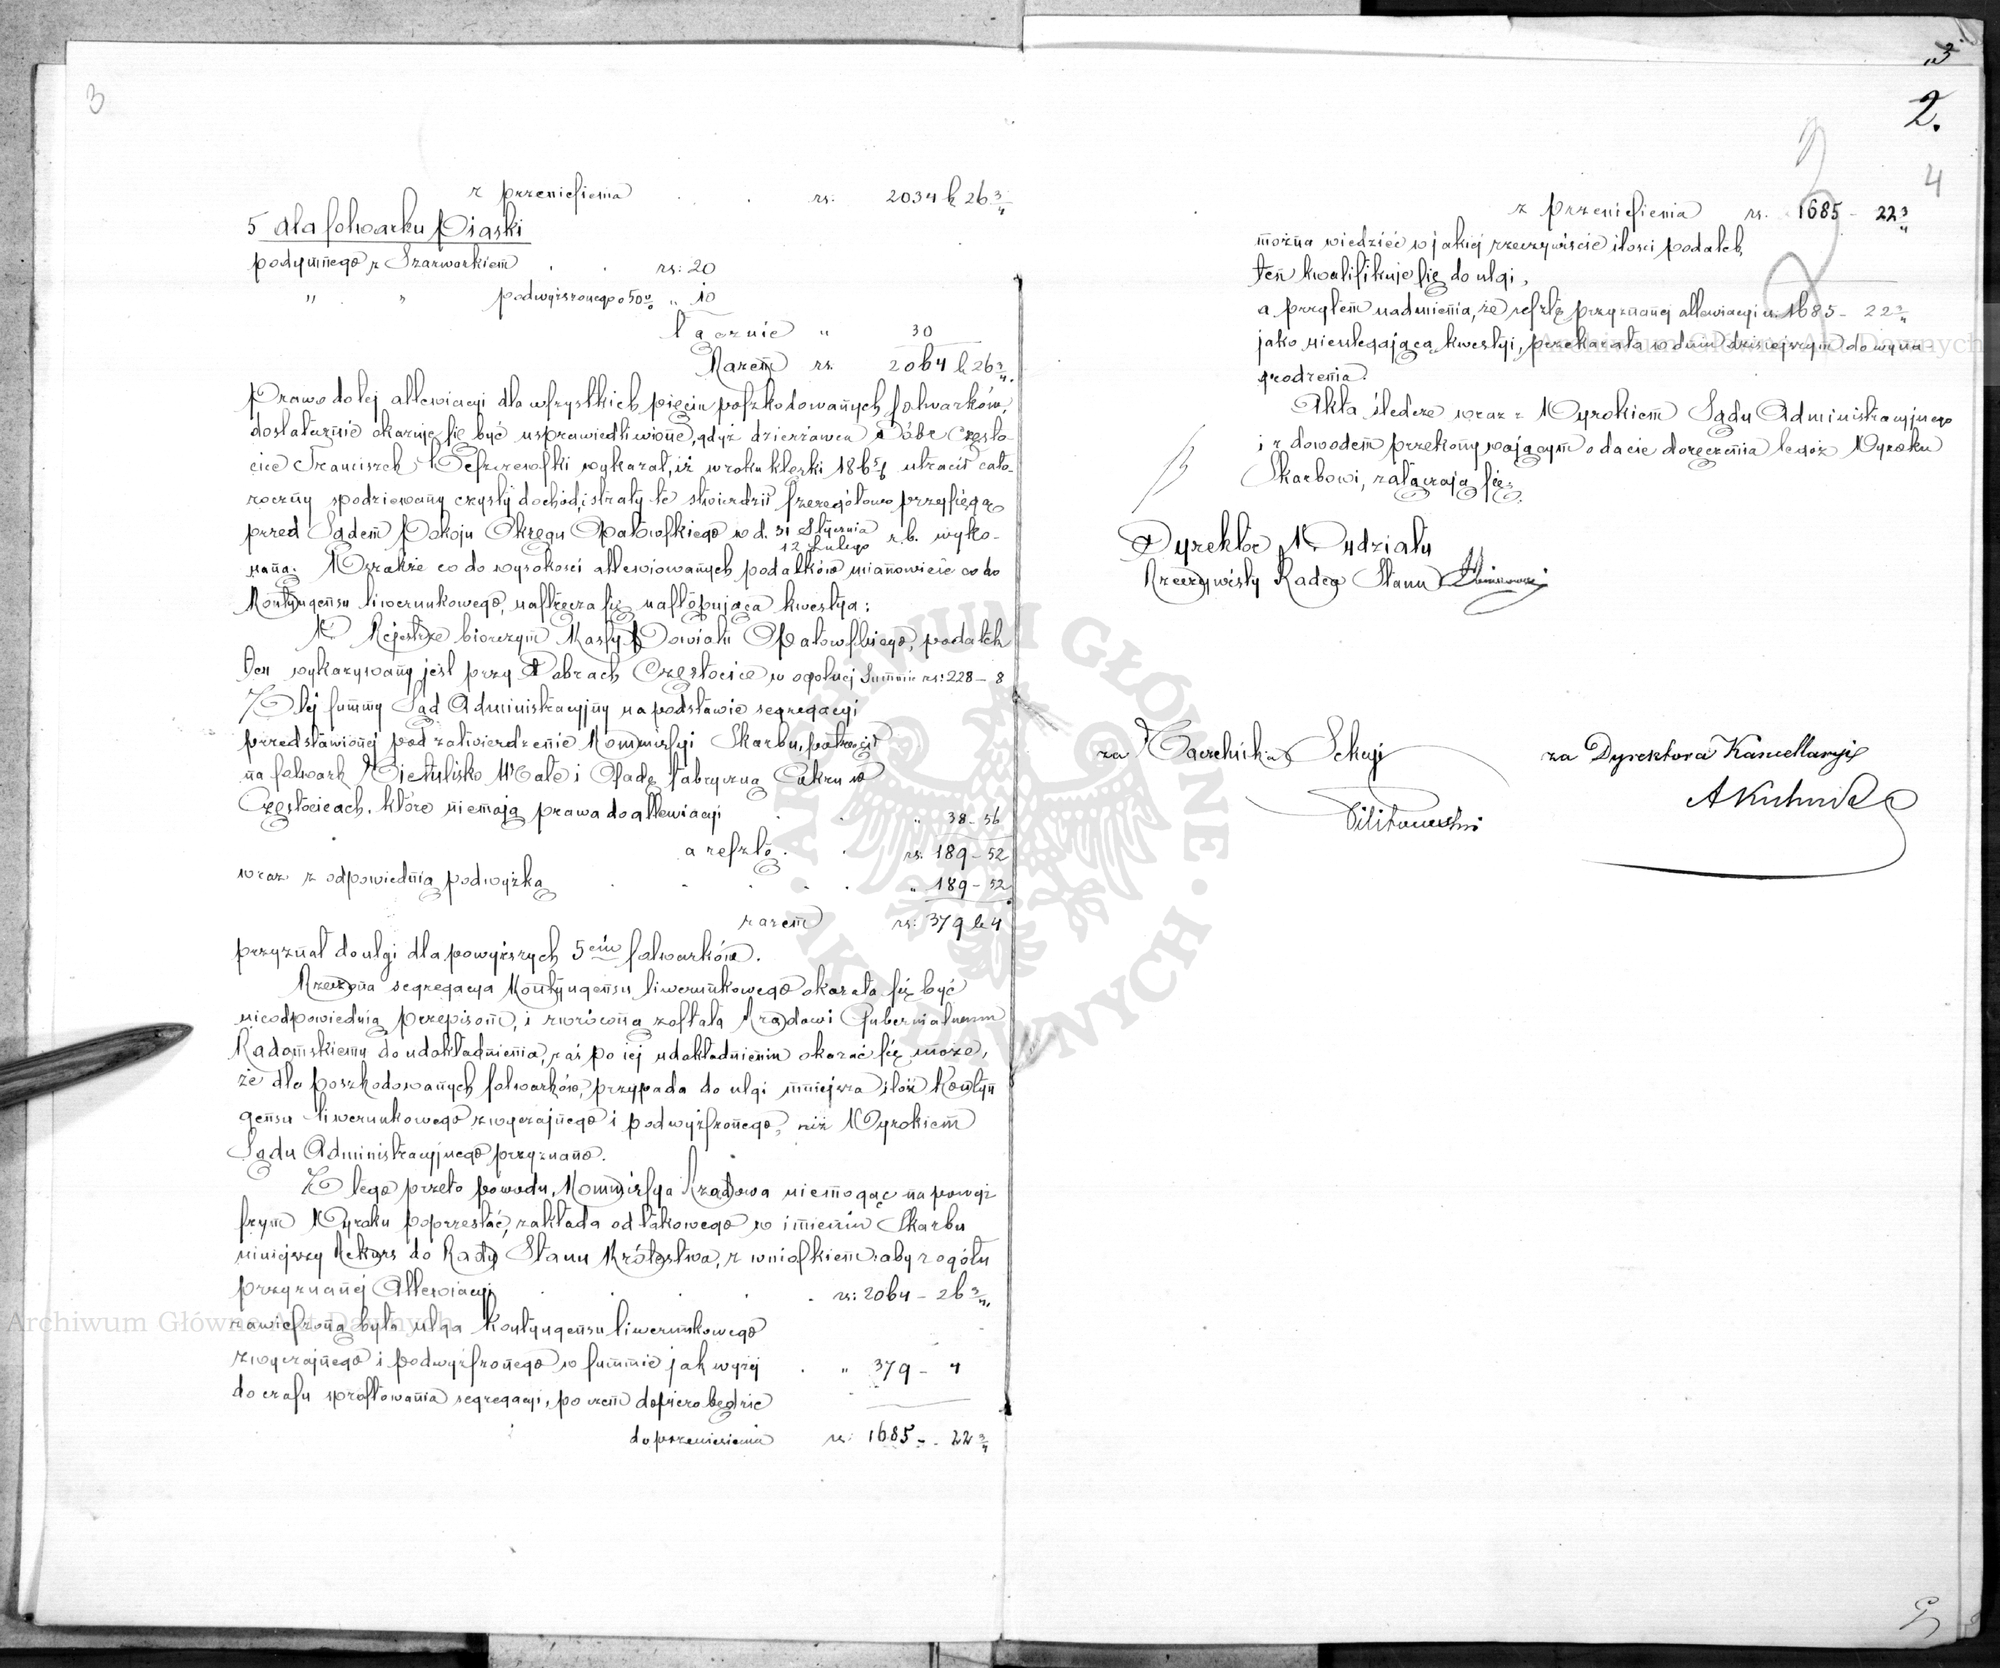 3
z przeniesienia . . . rs: 2034 k 26 3/4
5 dla folwarku Piaski
podymnego z Szarwarkiem . . rs: 20
" " podwyższonego o 50% " 10
łącznie " 30
Razem rs. 2064 k 26 3/4.
Prawo do tej allewiacyi dla wszystkich pięciu poszkodowanych folwarków,
dostatecznie okazuje się być usprawiedliwione, gdyż dzierżawca Dóbr Często-
cice Franciszek wykazał, iż w roku klęski utracił cało-
roczny spodziewany czysty dochód, i straty te stwierdził szczegółowo przysięgą
przed Sądem Pokoju Okręgu Opatowskiego w d. 31 Stycznia / 12 Lutego r.b. wyko-
naną. Wszakże co do wysokości allewiowanych podatków mianowicie co do
Kontyngensu liwerunkowego, nastręcza się następująca kwestya:
W Rejestrze bierczym Kassy Powiatu Opatowskiego, podatek
ten wykazywany jest przy Dobrach Częstocice w ogólnej Summie rs: 228 - 8
Z tej summy Sąd Administracyjny na podstawie segregacyi
przedstawionej pod zatwierdzenie Kommissyi Skarbu, potrącił
na folwark Nietulisko Małe i Osadę fabryczną Cukru w
Częstocicach, które niemają prawa do allewiacyi . . " 38 - 56
a resztę . . rs. 189 - 52
wraz z odpowiednią podwyżką . . . . . " 189 - 52
razem rs: 379 k 4
przyznał do ulgi dla powyższych 5ciu folwarków.
Rzeczona segregacya Kontyngensu liwerunkowego okazała się być
nieodpowiednią przepisom, i zwróconą została Rządowi Gubernialnemu
Radomskiemu do udokładnienia, zaś po jej udokładnieniu okazać się może,
że dla poszkodowanych folwarków, przypada do ulgi mniejsza ilość Kontyn
gensu liwerunkowego zwyczajnego i podwyższonego, niż Wyrokiem
Sądu Administracyjnego przyznano.
Z tego przeto powodu, Kommissya Rządowa niemogąc na powyż
szym Wyroku poprzestać, zakłada od takowego w imieniu Skarbu
niniejszy Rekurs do Rady Stanu Królestwa, z wnioskiem: aby z ogółu
przyznanej Allewiacyi . . . . rs: 2064 - 26 3/4.
zawieszoną była ulga kontyngensu liwerunkowego
zwyczajnego i podwyższonego w summie jak wyżej . " 379 - 4
do czasu sprostowania segregacyi, poczem dopiero będzie
do przeniesienia rs: 1685 - 22 3/4
3
2.
4
z przeniesienia rs. 1685 - 22 3/4
można wiedzieć w jakiej rzeczywiście ilości podatek
ten kwalifikuje się do ulgi,
a przytem nadmienia, że resztę przyznanej allewiacyi rs. 1685 - 22 3/4
jako nieulegającą kwestyi, przekazała w dniu dzisiejszym do wyna
grodzenia.
Akta śledcze wraz z Wyrokiem Sądu Administracyjnego
i z dowodem przekonywającym o dacie doręczenia tegoż Wyroku
Skarbowi, załączają się.
Dyrektor Wydziału
Rzeczywisty Radca Stanu
za Naczelnika Sekcyi
za Dyrektora Kancellaryi
Archiwum Główne Akt Dawnych
Archiwum Główne Akt Dawnych
ARCHIWUM GŁÓWNE AKT DAWNYCH